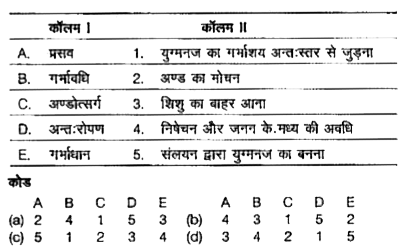 कॉलम I कॉलम II
A. प्रसव 1. युग्मनज का गर्भाशय अन्तःस्तर से जुड़ना
B. गर्भावधि 2. अण्ड का मोचन
C. अण्डोत्सर्ग 3. शिशु का बाहर आना
D. अन्तःरोपण 4. निषेचन और जनन के मध्य की अवधि
E. गर्भाधान 5. संलयन द्वारा युग्मनज का बनना
कोड
A B C D E A B C D E
(a) 2 4 1 5 3 (b) 4 3 1 5 2
(c) 5 1 2 3 4 (d) 3 4 2 1 5